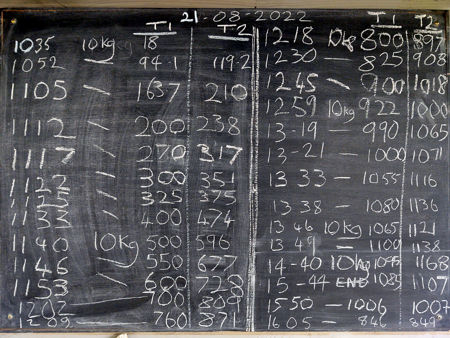 21-08-2022
T1 T2
1035 10kg 18
1052 — 94.1 119.2
1105 \ 163.7 210
1112 \ 200 238
1117 \ 270 317
1122 \ 300 351
1125 \ 325 375
1133 \ 400 474
1140 10kg 500 596
1146 \ 550 677
1153 \ 600 728
1202 — 700 809
1209 — 760 871
T1 T2
1218 10kg 800 897
1230 — 825 908
1245 \ 900 1018
1259 10kg 922 1000
13-19 — 990 1065
13-21 — 1000 1071
1333 — 1055 1116
1338 — 1080 1136
1346 10kg 1065 1121
1349 — 1100 1138
14-40 10kg 1095 1168
15-44 END 1085 1107
1550 — 1006 1007
1605 — 846 849